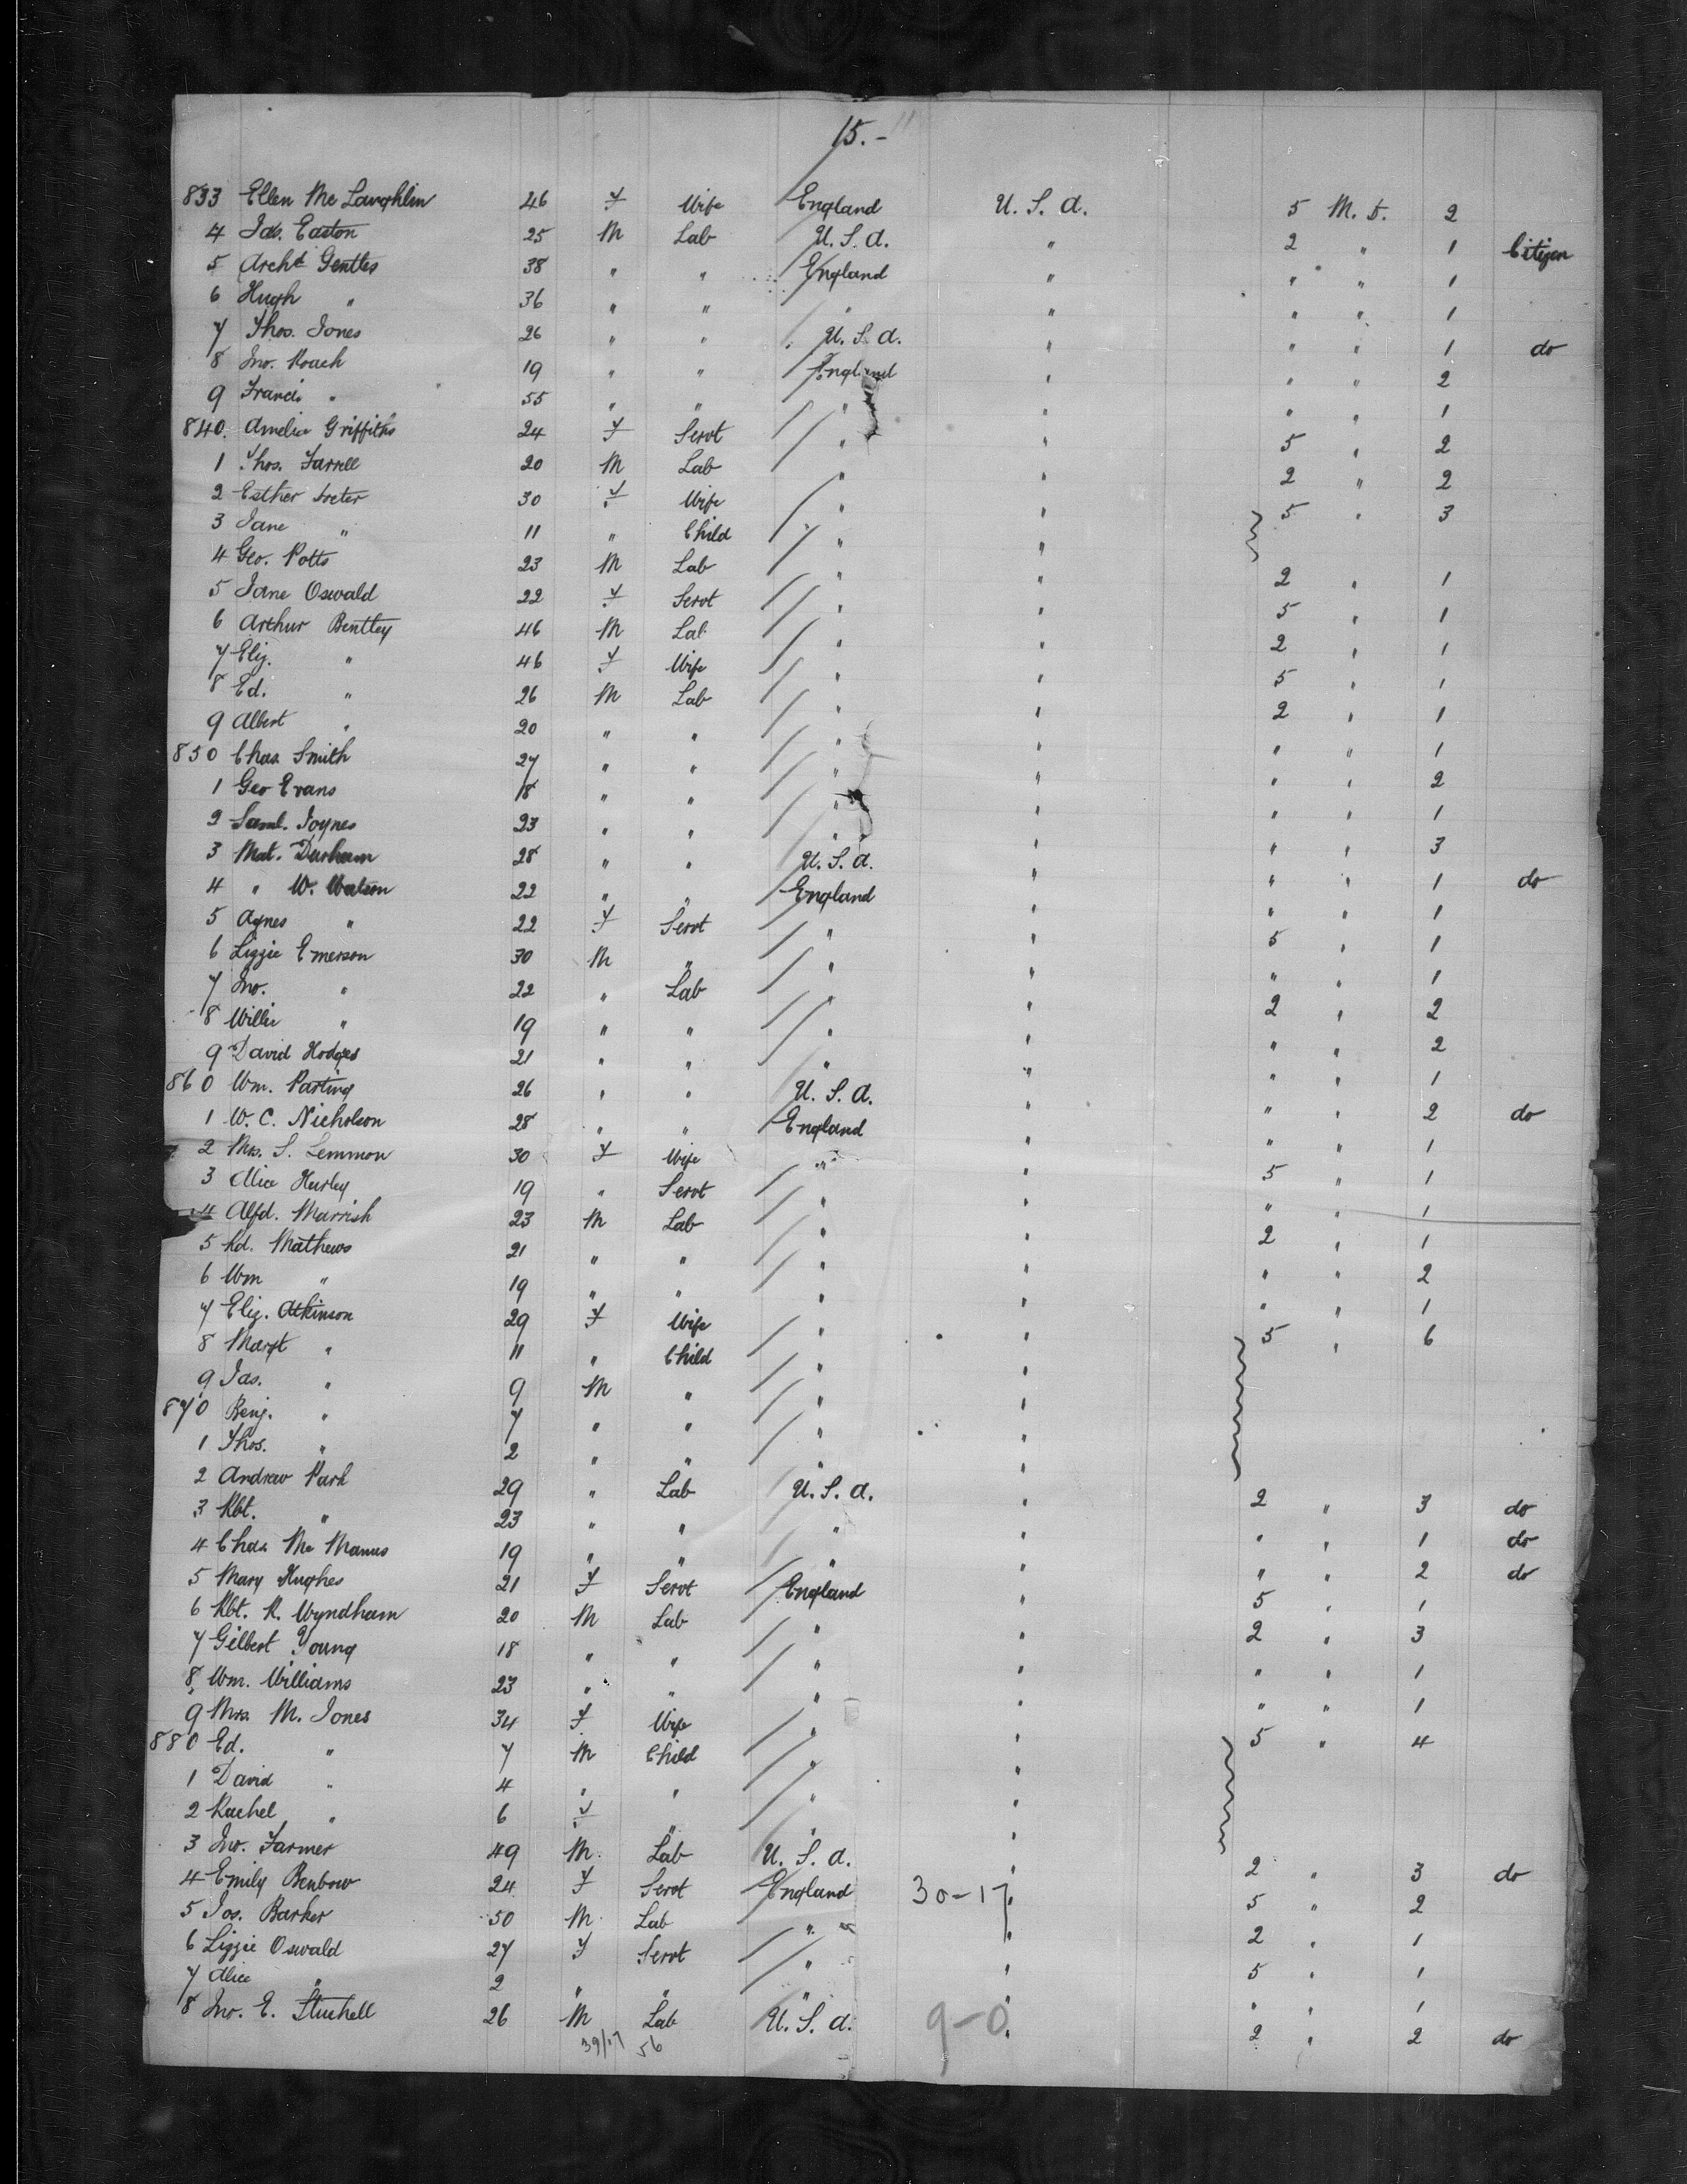 15.-
833 Ellen Mc Laughlin 46 F Wife England U. S. A. 5 M. D. 2
4 Jas. Easton 25 M Lab U. S. A. " 2 " 1 Citizen
5 Archd Gentles 38 " " England " " " 1
6 Hugh " 36 " " " " " " 1
7 Thos. Jones 26 " " U. S. A. " " " 1 do
8 Jno. Roach 19 " " England " " " 2
9 Francis " 55 " " " " " " 1
840. Amelia Griffiths 24 F Servt " " 5 " 2
1 Thos. Farrell 20 M Lab " " 2 " 2
2 Esther 30 F Wife " " 5 " 3
3 Jane " 11 " Child " "
4 Geo. Potts 23 M Lab " " 2 " 1
5 Jane Oswald 22 F Servt " " 5 " 1
6 Arthur Bentley 46 M Lab " " 2 " 1
7 Eliz. " 46 F Wife " " 5 " 1
8 Ed. " 26 M Lab " " 2 " 1
9 Albert " 20 " " " " " " 1
850 Chas Smith 27 " " " " " " 2
1 Geo Evans 18 " " " " " " 1
2 Saml. Joynes 23 " " " " " " 3
3 Mat. Durham 28 " " U. S. A. " " " 1 do
4 " W. Watson 22 " " England " " " 1
5 Agnes " 22 F Servt " " 5 " 1
6 Lizzie Emerson 30 M " " " " " 1
7 Jno. " 22 " Lab " " 2 " 2
8 Willie " 19 " " " " " " 2
9 David Hodges 21 " " " " " " 1
860 Wm. Parting 26 " " U. S. A. " " " 2 do
1 W. C. Nicholson 28 " " England " " " 1
2 Mrs. S. Lemmon 30 F Wife " " 5 " 1
3 Alice Hurley 19 " Servt " " " " 1
4 Alfd. Marrish 23 M Lab " " 2 " 1
5 Rd. Mathews 21 " " " " " " 2
6 Wm " 19 " " " " " " 1
7 Eliz. Atkinson 29 F Wife " " 5 " 6
8 Margt " 11 " Child " "
9 Jas. " 9 M " " "
870 Benj. " 7 " " " "
1 Thos. " 2 " " " "
2 Andrew Park 29 " Lab U. S. A. " 2 " 3 do
3 Rbt. " 23 " " " " " " 1 do
4 Chas Mc Manus 19 " " " " " " 2 do
5 Mary Hughes 21 F Servt England " 5 " 1
6 Rbt. R. Wyndham 20 M Lab " " 2 " 3
7 Gilbert Young 18 " " " " " " 1
8 Wm. Williams 23 " " " " " " 1
9 Mrs. M. Jones 34 F Wife " " 5 " 4
880 Ed. " 7 M Child " "
1 David " 4 " " " "
2 Rachel " 6 F " " "
3 Jno. Farmer 49 M Lab U. S. A. " 2 " 3 do
4 Emily Benbow 24 F Servt England 30-17 " 5 " 2
5 Jos. Barker 50 M Lab " " 2 " 1
6 Lizzie Oswald 27 F Servt " " 5 " 1
7 Alice " 2 " " " " " " 1
8 Jno. E. 26 M Lab U. S. A. 9-0 " 2 " 2 do
39/17 56